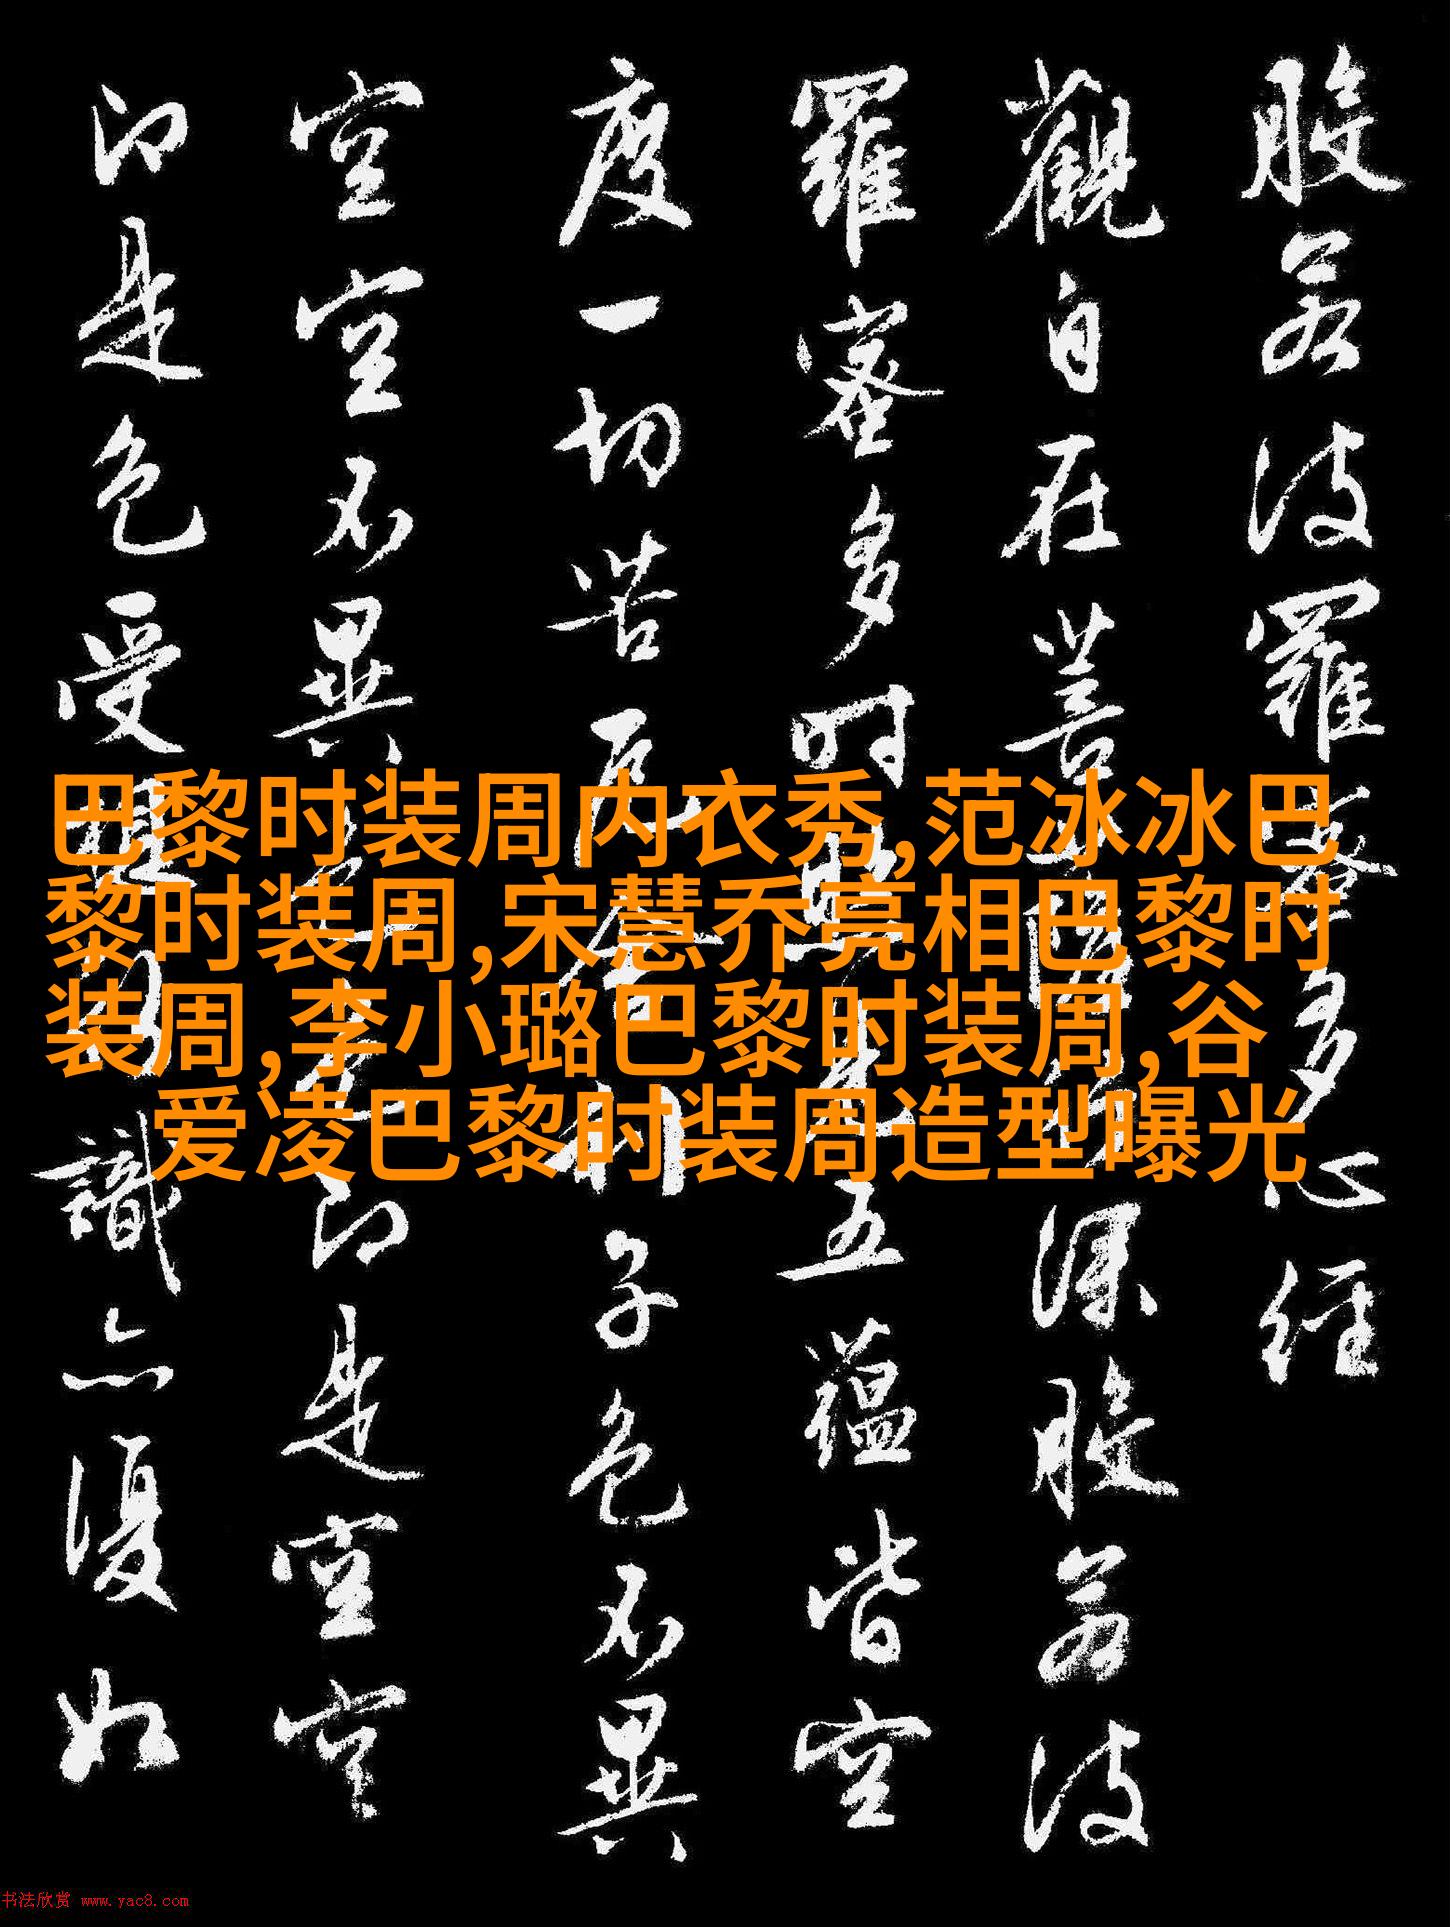 般若波羅蜜多心經
觀自在菩薩行深般若波
羅蜜多时照見五蘊皆空
度一切苦厄舍利子色不異
空空不異色色即是空空
即是色受想行識亦復如
巴黎时装周内衣秀,范冰冰巴
黎时装周,宋慧乔亮相巴黎时
装周,李小璐巴黎时装周,谷
爱凌巴黎时装周造型曝光
书法欣赏 www.yac8.com